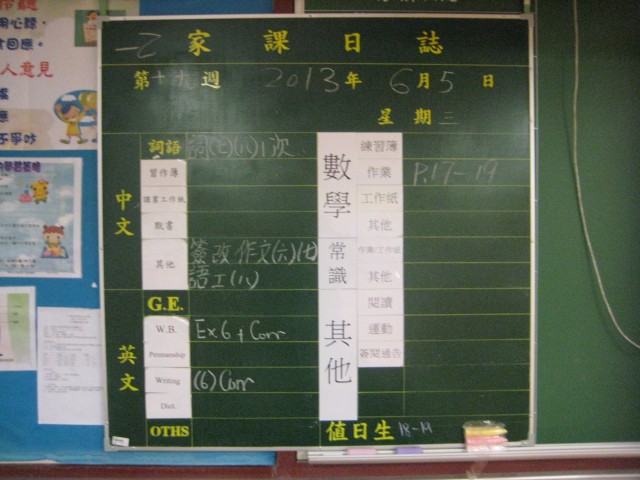 用心聽,
回應。
人意見
應
不爭吵
一乙 家課日誌
第十九週 2013年 6月5日
星期三
中文
詞語 詞(七)(八)1次
習作簿
讀書工作紙
默書
其他 簽改作文(六)(七)
語工(八)
英文
G.E.
W.B. Ex6 + Corr
Penmanship
Writing (6) Corr
Dict.
OTHS
數學
練習簿
作業 P.17-19
工作紙
其他
常識
作業/工作紙
其他
其他
閱讀
運動
簽閱通告
值日生 18-19